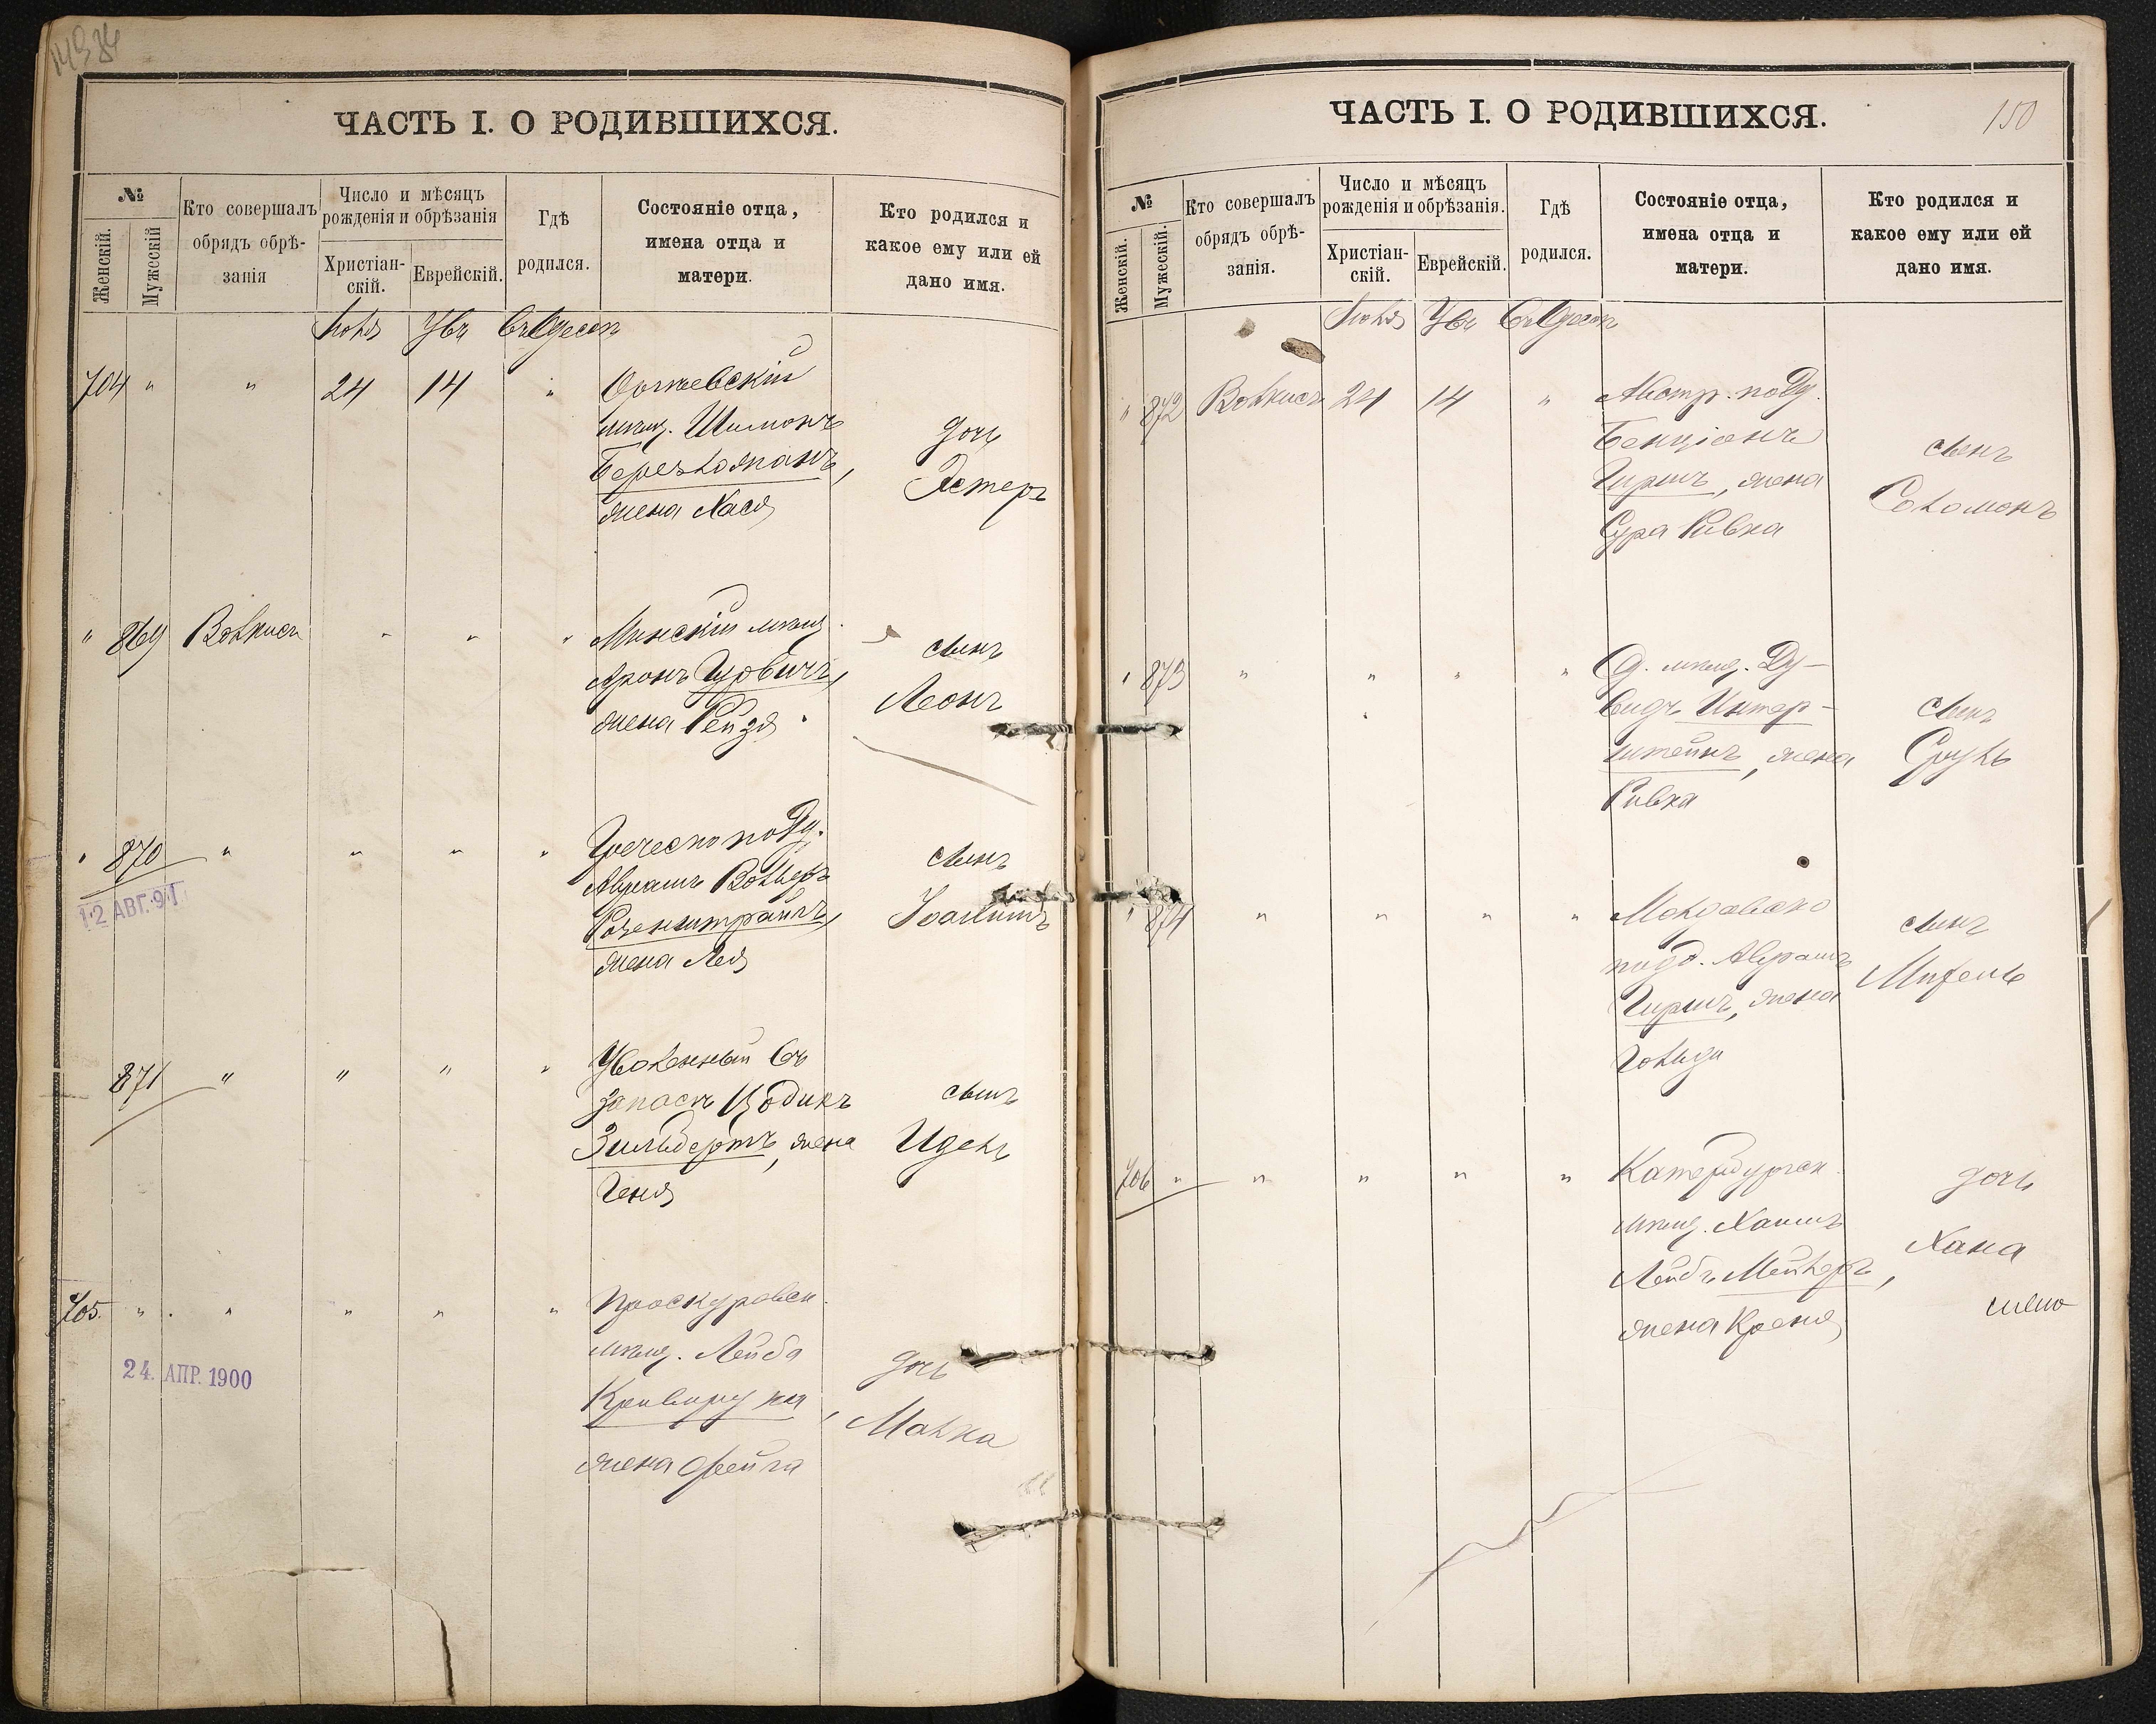 ЧАСТЬ I. О РОДИВШИХСЯ.
№
Женскій.
Мужескій
Кто совершалъ
обрядъ обрѣ-
занія
Число и мѣсяцъ
рожденія и обрѣзанія
Христіан-
скій.
Еврейскій.
Гдѣ
родился.
Состояніе отца,
имена отца и
матери.
Кто родился и
какое ему или ей
дано имя.
Іюля Увъ Въ Одессѣ
704 " " 24 14 "
мѣщ. Шимонъ
жена Хася
дочь
Эстеръ
" 869 Волкисъ " " "
Минскій мѣщ.
Аронъ Гуровичъ,
жена Рейзя
сынъ
Леонъ
" 870 " " " "
12 АВГ. 91
Греческоподд.
Авраамъ Вольфъ
Розенштрайхъ,
жена Лея
сынъ
Іоахимъ
871 " " " "
Уволенный въ
запасъ Цодикъ
Зильбертъ, жена
Геня
сынъ
Идель
705 " " " " "
24. АПР. 1900
Проскуровск.
мѣщ. Лейба
Кривиручка,
жена Фейга
дочь
Малка
ЧАСТЬ I. О РОДИВШИХСЯ.
150
№
Женскій.
Мужескій.
Кто совершалъ
обрядъ обрѣ-
занія.
Число и мѣсяцъ
рожденія и обрѣзанія.
Христіан-
скій.
Еврейскій.
Гдѣ
родился.
Состояніе отца,
имена отца и
матери.
Кто родился и
какое ему или ей
дано имя.
Іюля Увъ Въ Одессѣ
" 872 Волкисъ 24 14 "
Австр. подд.
Бенціонъ
Гиршъ, жена
Сура Ривка
сынъ
Соломонъ
" 873 " " " "
Од. мѣщ. Ду-
видъ Интер-
штейнъ, жена
Ривка
сынъ
Сруль
" 874 " " " "
Молдавско
подд. Авраамъ
Гиршъ, жена
Гольда
сынъ
Михель
706 " " " " "
Катербургск.
мѣщ. Хаимъ
Лейбъ Мейлеръ,
жена Креня
дочь
Хана